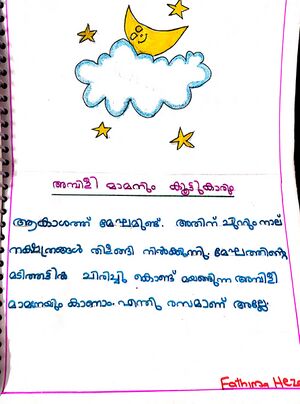 അമ്പിളി മാമനും കൂട്ടുകാരും
ആകാശത്ത് മേഘമുണ്ട്. അതിന് ചുറ്റും നാല്
നക്ഷത്രങ്ങൾ തിളങ്ങി നിൽക്കുന്നു. മേഘത്തിന്റെ
മടിത്തട്ടിൽ ചിരിച്ചു കൊണ്ട് മയങ്ങുന്ന അമ്പിളി
മാമനേയും കാണാം. എന്തു രസമാണ് അല്ലേ.
Fathima Heza